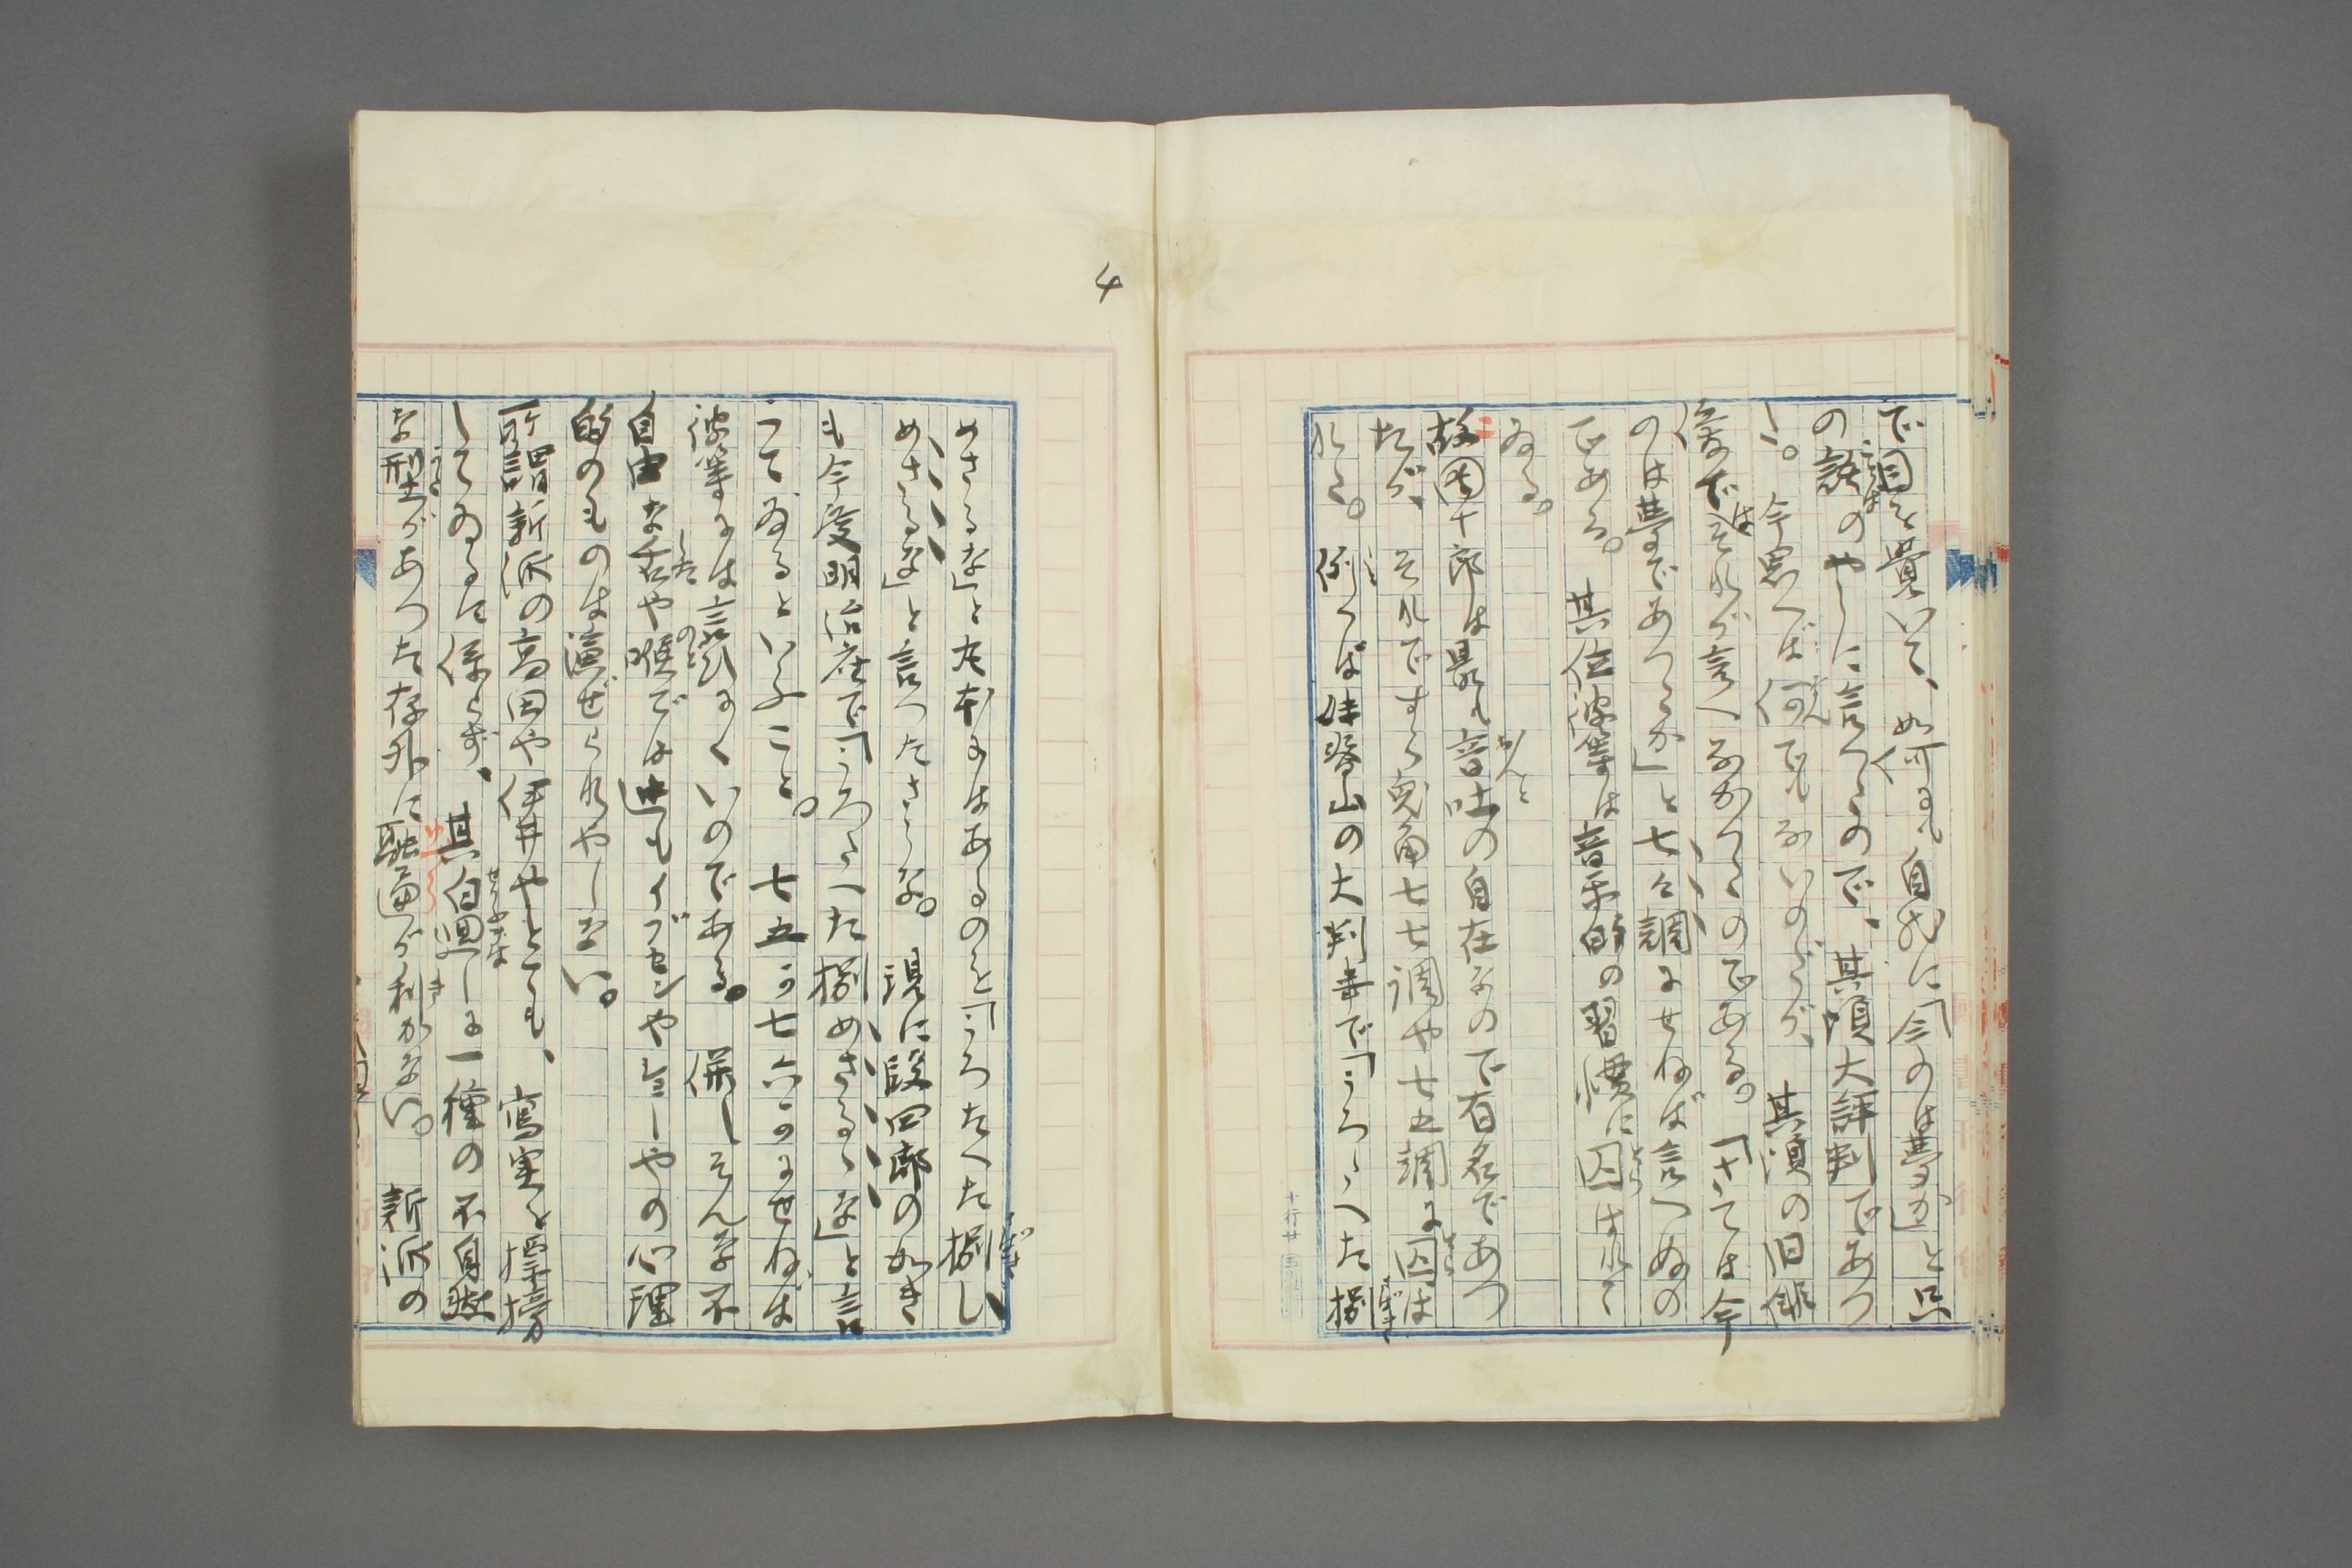 で目を覚いて、如何にも自然に「今のは夢か」と只
の話のやうに言つたので、其頃大評判であつ
た。今思へば何でもないのだが、其頃の旧俳
優ではそれが言へなかつたのである。「さては今
のは夢であつたか」と七々調にせねば言へぬの
である。其位彼等は音楽的の習慣に囚はれて
ゐる。
故団十郎は最も音吐の自在なので有名であつ
たが、それですら兎角七七調や七五調に囚は
れた。例へば妹脊山の大判事で「うろたへた捌
めさるな」と丸本にはあるのを「うろたへた捌し
めさるな」と言つたさうな。現に段四郎の如き
も今度明治座で「うろたへた捌めさるゝな」と言
つてゐるといふこと。七五か七六かにせねば
彼等には言ひにくいのである。併しそんな不
自由な舌や喉では迚もイブセンやショーやの心理
的のものは演ぜられやしない。
所謂新派の高田や伊井やとても、寫実を標榜
してゐるに係らず、其白廻しに一種の不自然
な型があつた存外に融通が利かない。新派の
4